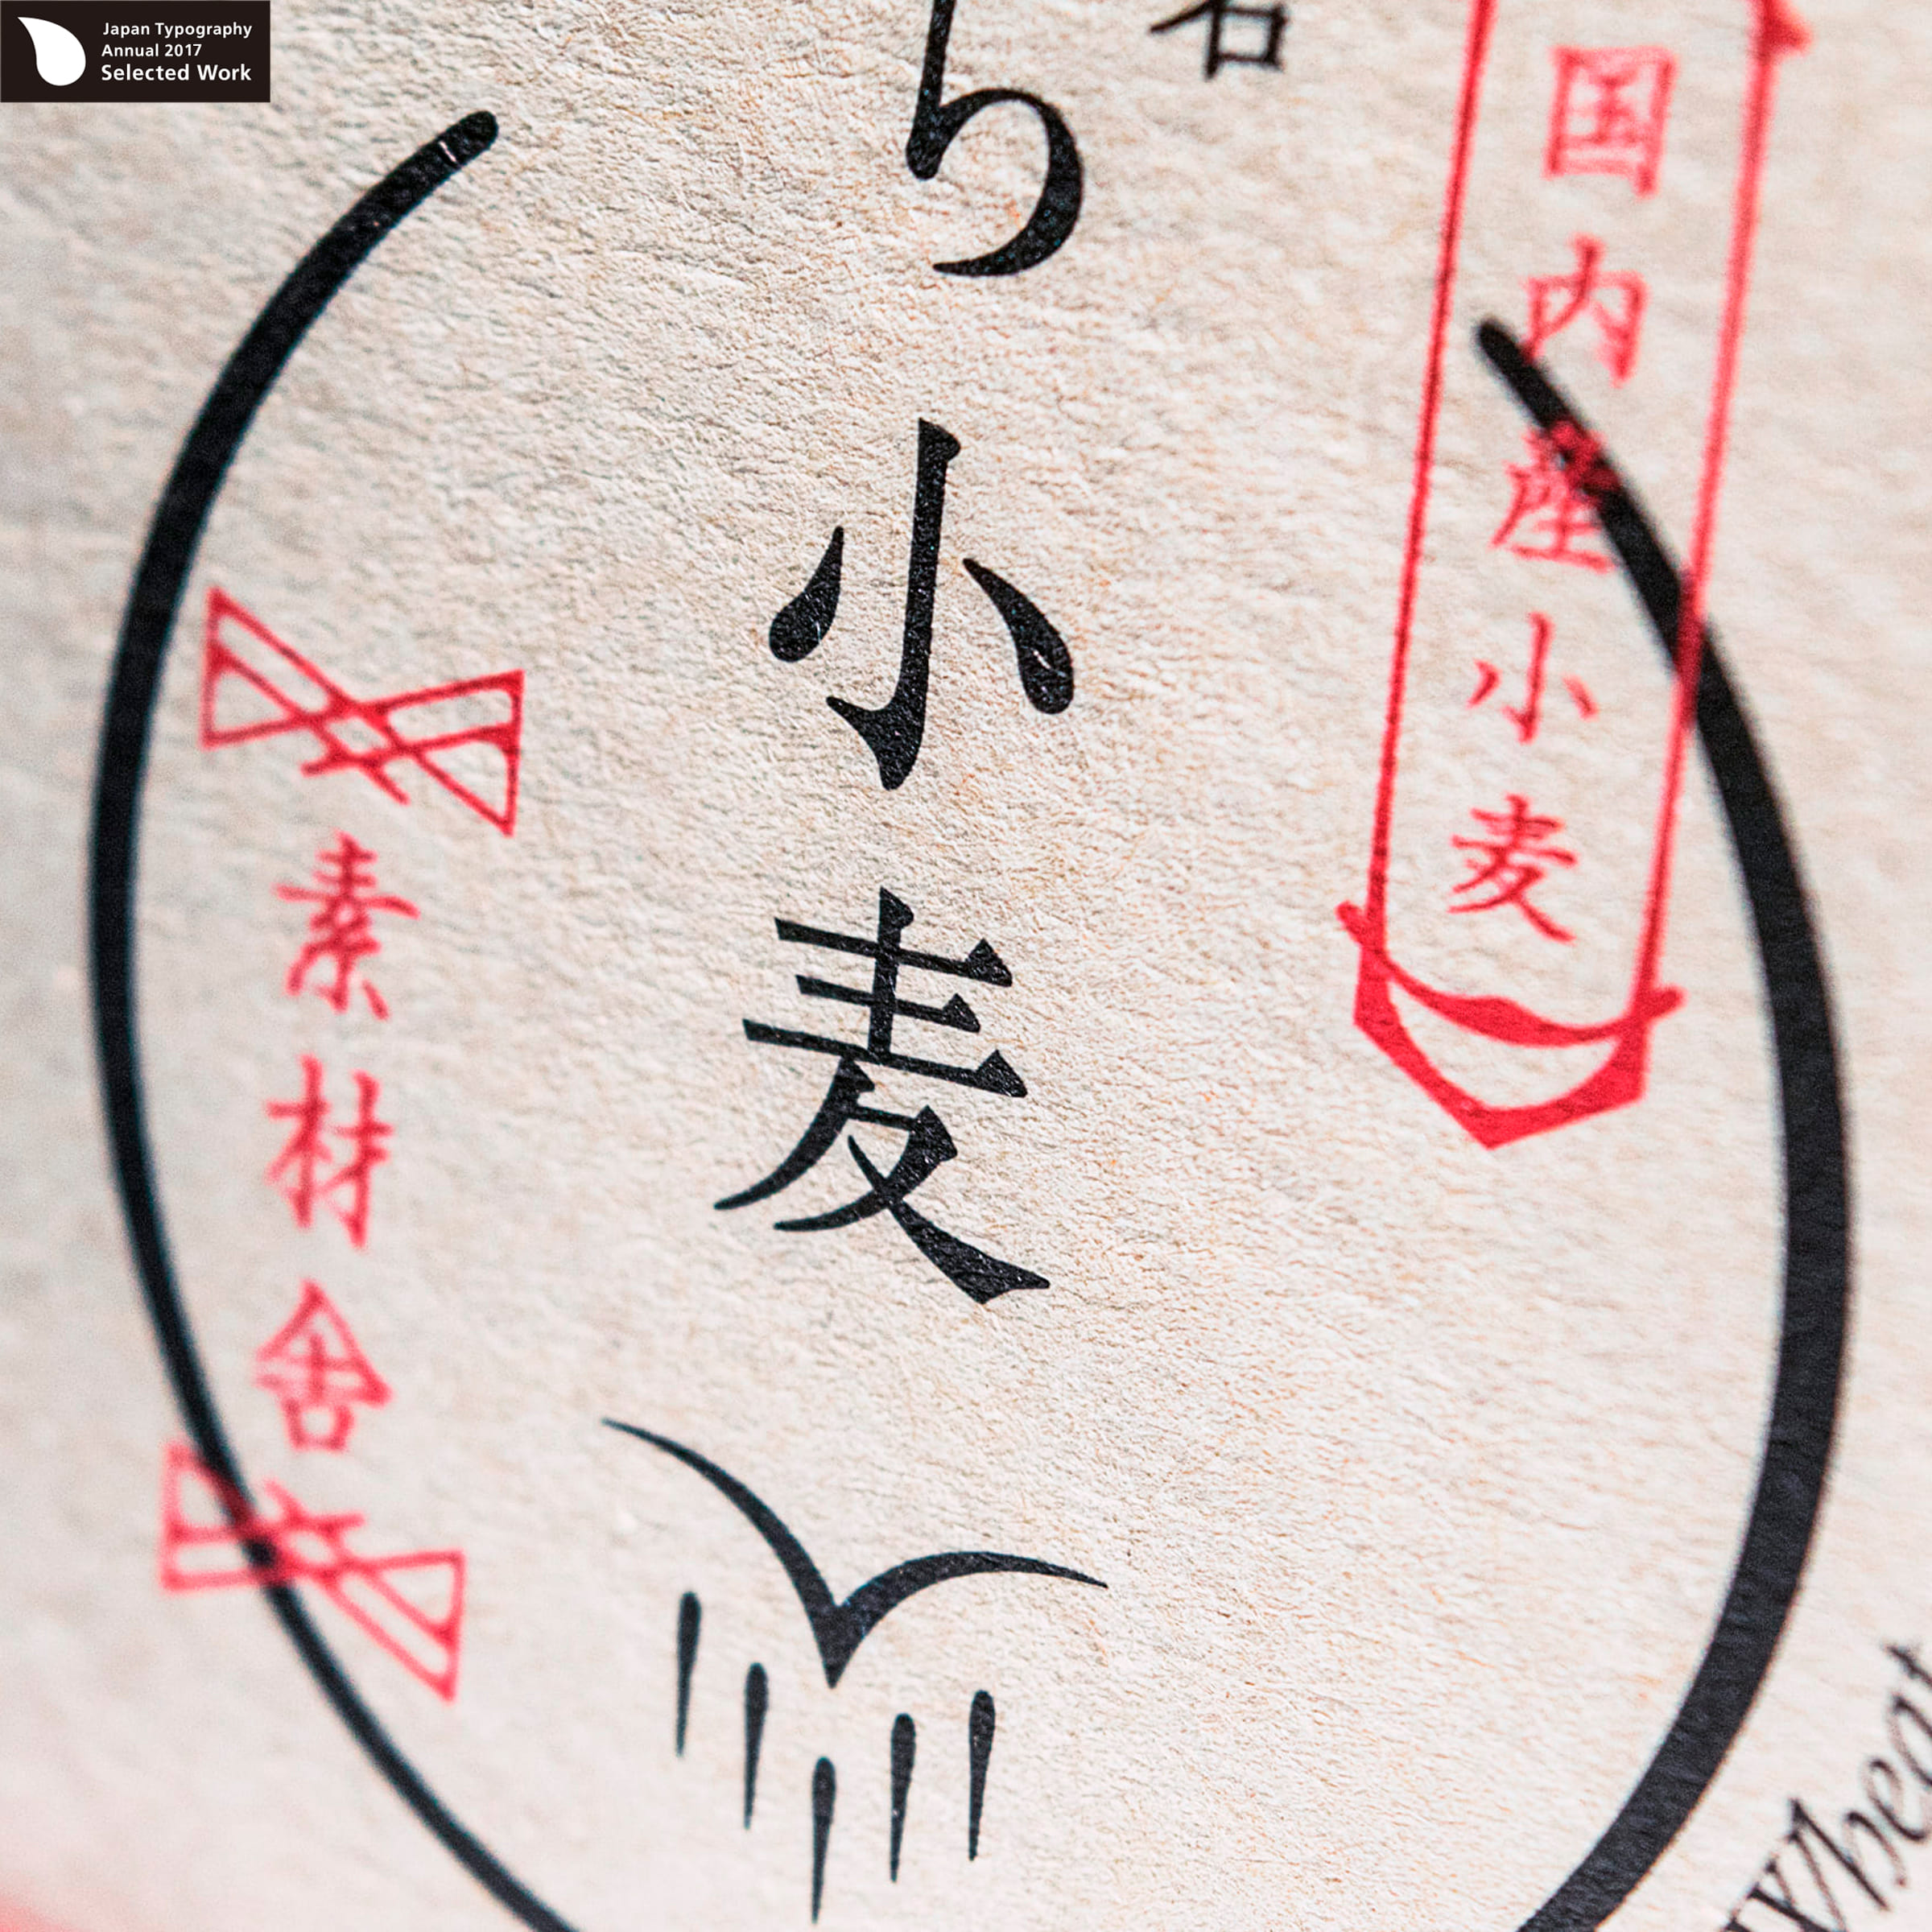 Japan Typography
Annual 2017
Selected Work
国内産小麦
小麦
素材舎
Wheat